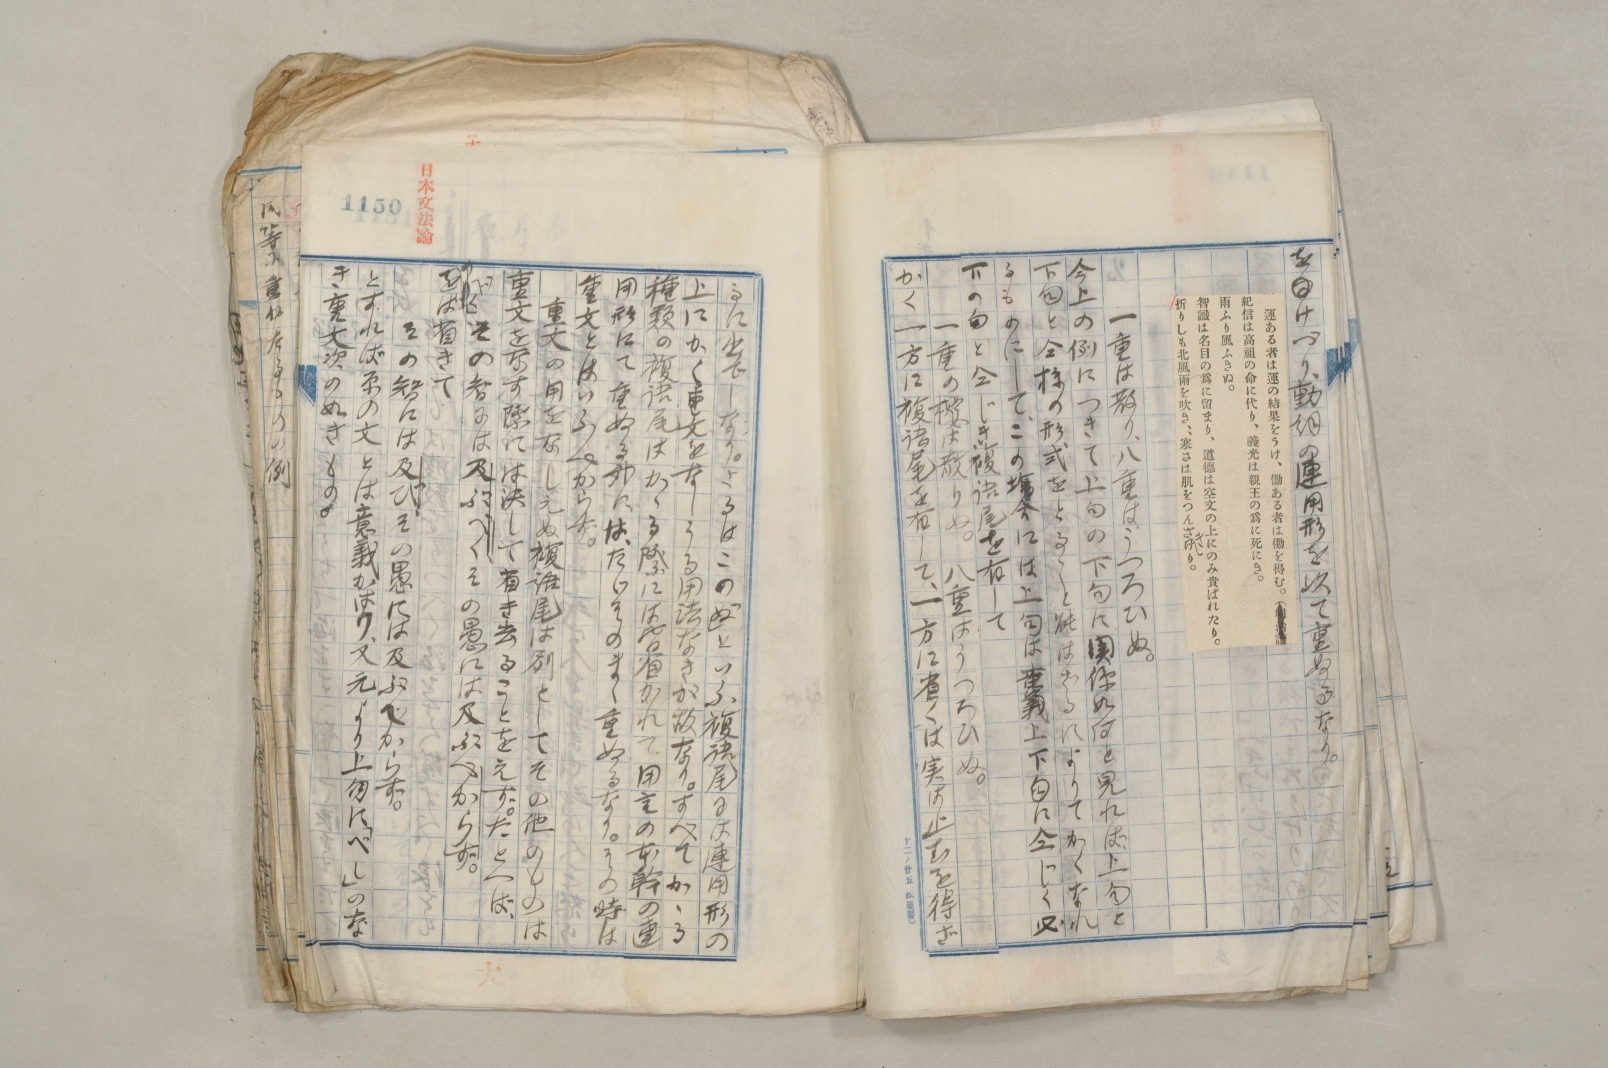 を自けづり、動詞の連用形を以て重ぬるなり。
運ある者は運の結果をうけ、働ある者は働を得む。
紀信は高祖の命に代り、義光は親王の爲に死にき。
雨ふり風ふきぬ。
智識は名目の爲に留まり、道德は空文の上にのみ貴ばれたり。
折りしも北風雨を吹き、寒さは肌をつんざけり。
一重は散り、八重はうつろひぬ。
今上の例につきて上句の下句に関係如何と見れば、上句と
下句と全様の形式をとること能はざるによりてかくなれ
るものにして、この場合には上句は意義上下句に仝じく必
下の句と仝じき複語尾を有して
一重の櫻は散りぬ。八重はうつろひぬ。
かく一方に複語尾を有して、一方に省くは実は止むを得ざ
るに出でしなり。さるはこの「ぬ」といふ複語尾には連用形の
上にかく重文をなしうる用法なきが故なり。すべてかゝる
種類の複語尾はかゝる際には皆省かれて用言の本幹の連
用形にて重ぬる外には、たゞそのまゝ重ぬるなり。その時は
重文とはいふべからず。
重文の用をなしえぬ複語尾は別としてその他のものは
重文をなす際には決して省き去ることをえず。たとへば、
その智には及ぶべくその愚には及ぶべからず。
をば省きて
その智には及びその愚には及ぶべからず。
とすれば原の文とは意義かはり、又元より上句に「べし」のな
き重文次の如きもの。
日本文法論
1150